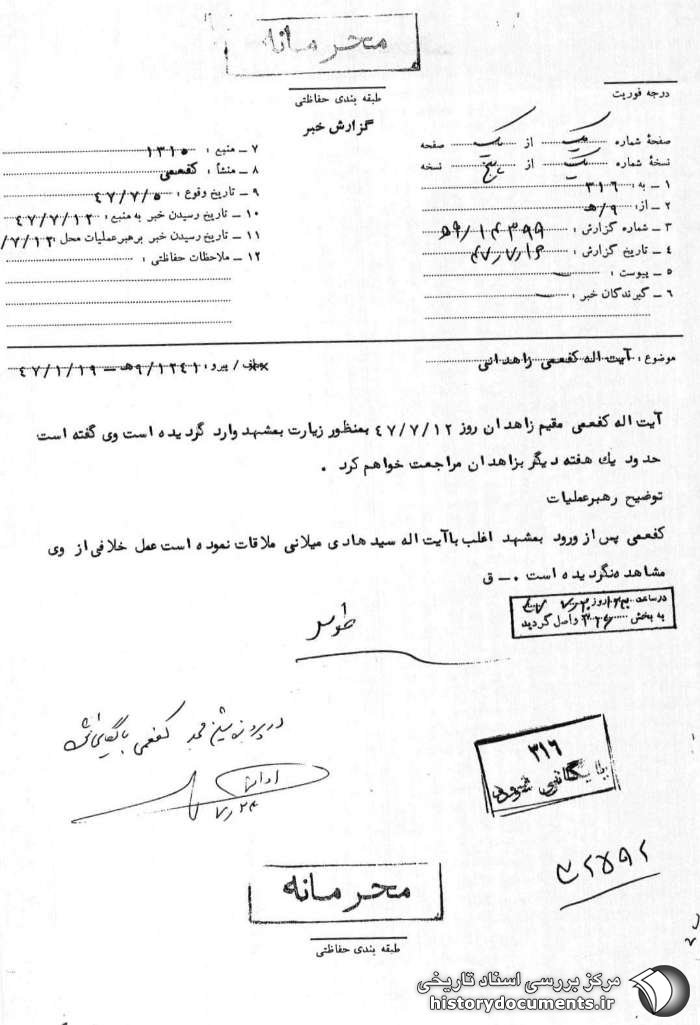 محرمانه
طبقه بندی حفاظتی
درجه فوریت
گزارش خبر
صفحهٔ شماره یک از یک صفحه
نسخهٔ شماره یک از پنج نسخه
۱ – به : ۳۱۶
۲ – از : ۹/هـ
۳ – شماره گزارش : ۱۴۳۹۹/۹هـ
۴ – تاریخ گزارش :
۵ – پیوست : –
۶ – گیرندگان خبر : –
۷ – منبع : ۱۳۱۰
۸ – منشأ : کفعمی
۹ – تاریخ وقوع : ۴۷/۷/۵
۱۰ – تاریخ رسیدن خبر به منبع : ۴۷/۷/۱۲
۱۱ – تاریخ رسیدن خبر برهبر عملیات محل : /۷/۱۳
۱۲ – ملاحظات حفاظتی :
موضوع : آیت اله کفعمی زاهدانی
پیرو : ۹/۱۲۴۱هـ – ۴۷/۱/۱۹
آیت اله کفعمی مقیم زاهدان روز ۴۷/۷/۱۲ بمنظور زیارت بمشهد وارد گردیده است وی گفته است
حدود یك هفته دیگر بزاهدان مراجعت خواهم کرد .
توضیح رهبرعملیات
کفعمی پس از ورود بمشهد اغلب باآیت اله سید هادی میلانی ملاقات نموده است عمل خلافی از وی
مشاهده نگردیده است .– ق
در ساعت روز
به بخش ۳۱۶ واصل گردید
طوسی
در پرونده شیخ محمد کفعمی بایگانی شود
۷/۲۴
۳۱۶
بایگانی شود
محرمانه
طبقه بندی حفاظتی
مرکز بررسی اسناد تاریخی
historydocuments.ir